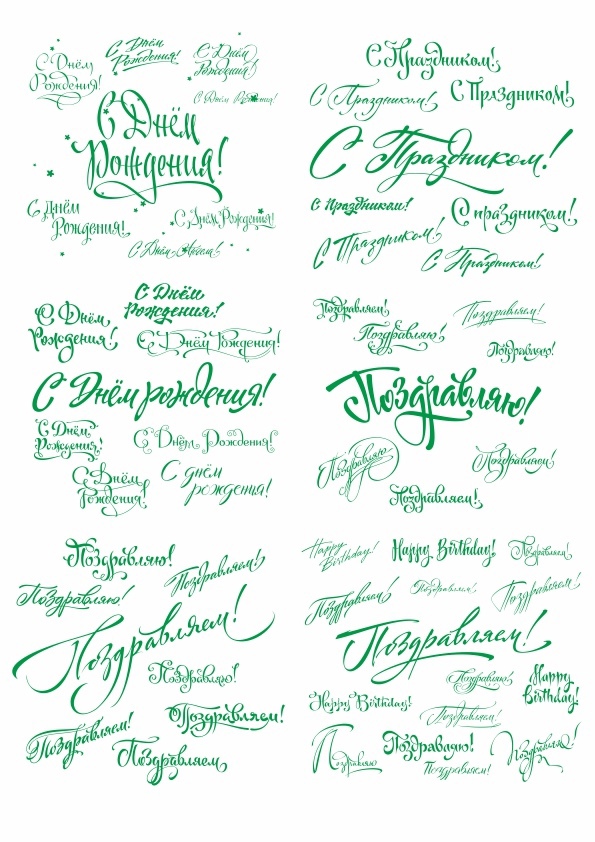 С Днём
Рождения!
С Днём
Рождения!
С Днём
Рождения!
С Днём Рождения!
С Днём
Рождения!
С Днём
Рождения!
С Днём Рождения!
С Днём Ангела!
С Праздником!
С Праздником!
С Праздником!
С Праздником!
С Праздником!
С праздником!
С Праздником!
С Праздником!
С Днём
Рождения!
С Днём
Рождения!
С Днём Рождения!
С Днём рождения!
С Днём
Рождения!
С Днём Рождения!
С Днём
Рождения!
С днём
рождения!
Поздравляем!
Поздравляю!
Поздравляем!
Поздравляю!
Поздравляю!
Поздравляю
Поздравляем!
Поздравляем!
Поздравляю!
Поздравляем!
Поздравляю!
Поздравляем!
Поздравляю!
Поздравляем!
Поздравляем!
Поздравляем
Happy
Birthday!
Happy Birthday!
Поздравляем!
Поздравляем!
Поздравляем!
Поздравляем!
Поздравляем!
Поздравляю!
Happy
Birthday!
Happy Birthday!
Поздравляем!
Поздравляю
Поздравляю!
Поздравляем!
Поздравляю!